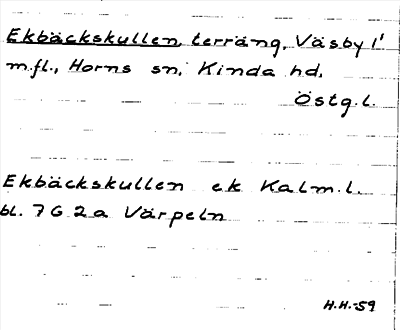 Ekbäckskullen, terräng, Väsby 1¹
m.fl., Horns sn, Kinda hd,
Östg.l.
Ekbäckskullen ek Kalm.l.
bl. 7 G 2 a Värpeln
H.H.-59